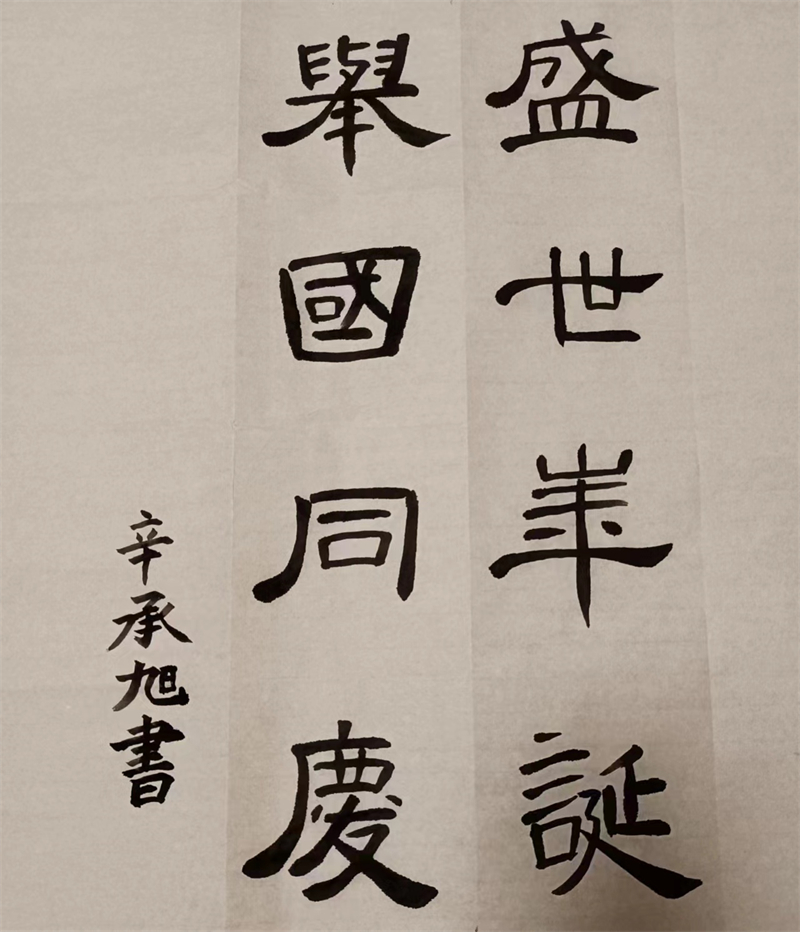 盛世華誕
舉國同慶
辛承旭書